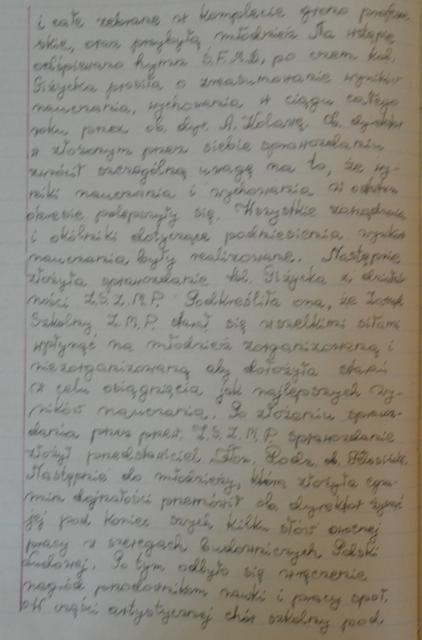 i całe zebrane w komplecie grono profesor-
skie, oraz przybyła młodzież. Na wstępie
odśpiewano hymn Ś.F.M.D., po czem kol.
Giżycka prosiła o zreasumowanie wyników
nauczania, wychowania w ciągu całego
roku przez ob. dyr. A. Kolasę. Ob. dyrektor
w złożonym przez siebie sprawozdaniu
zwrócił szczególną uwagę na to, że wy-
niki nauczania i wychowania w ostatnim
okresie polepszyły się. Wszystkie zarządzenia
i okólniki dotyczące podniesienia wyników
nauczania były realizowane. Następnie
złożyła sprawozdanie kol. Giżycka z działal-
ności Z.S.Z.M.P. Podkreśliła ona, że Zarząd
Szkolny Z.M.P. starał się wszelkimi siłami
wpłynąć na młodzież zorganizowaną i
niezorganizowaną aby dołożyła starań
w celu osiągnięcia jak najlepszych wy-
ników nauczania. Po złożeniu sprawoz-
dania przez przew. Z.S.Z.M.P. sprawozdanie
złożył przedstawiciel Kom. Rodz. ob.
Następnie do młodzieży, która złożyła egza-
min dojrzałości przemówił ob. dyrektor życząc
jej pod koniec swych kilku słów owocnej
pracy w szeregach budowniczych Polski
Ludowej. Po tym odbyło się wręczenie
nagród przodownikom nauki i pracy społ.
W części artystycznej chór szkolny pod